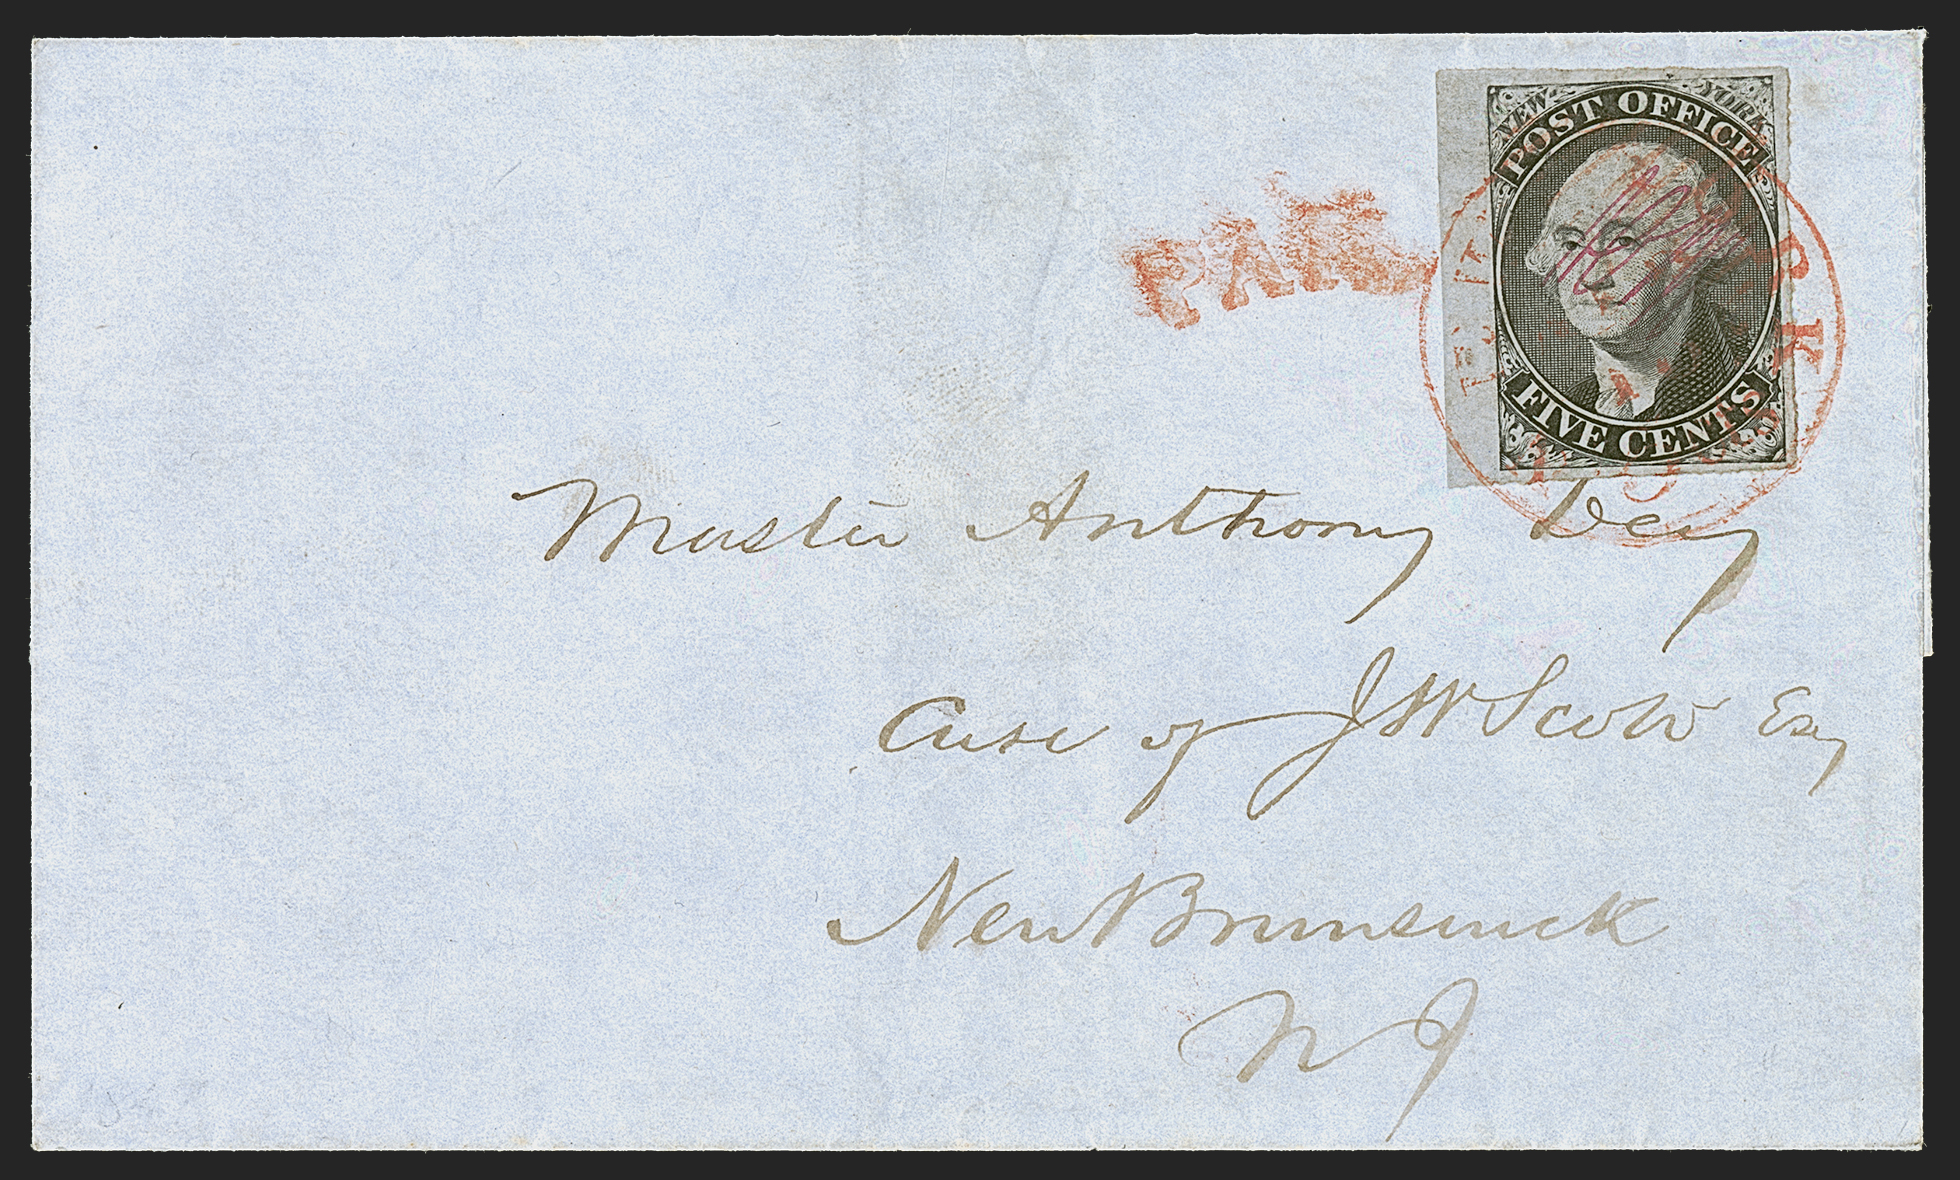 NEW YORK
POST OFFICE
FIVE CENTS
PAID
Master Anthony Dey
Care of J W Scott Esq
New Brunswick
N J